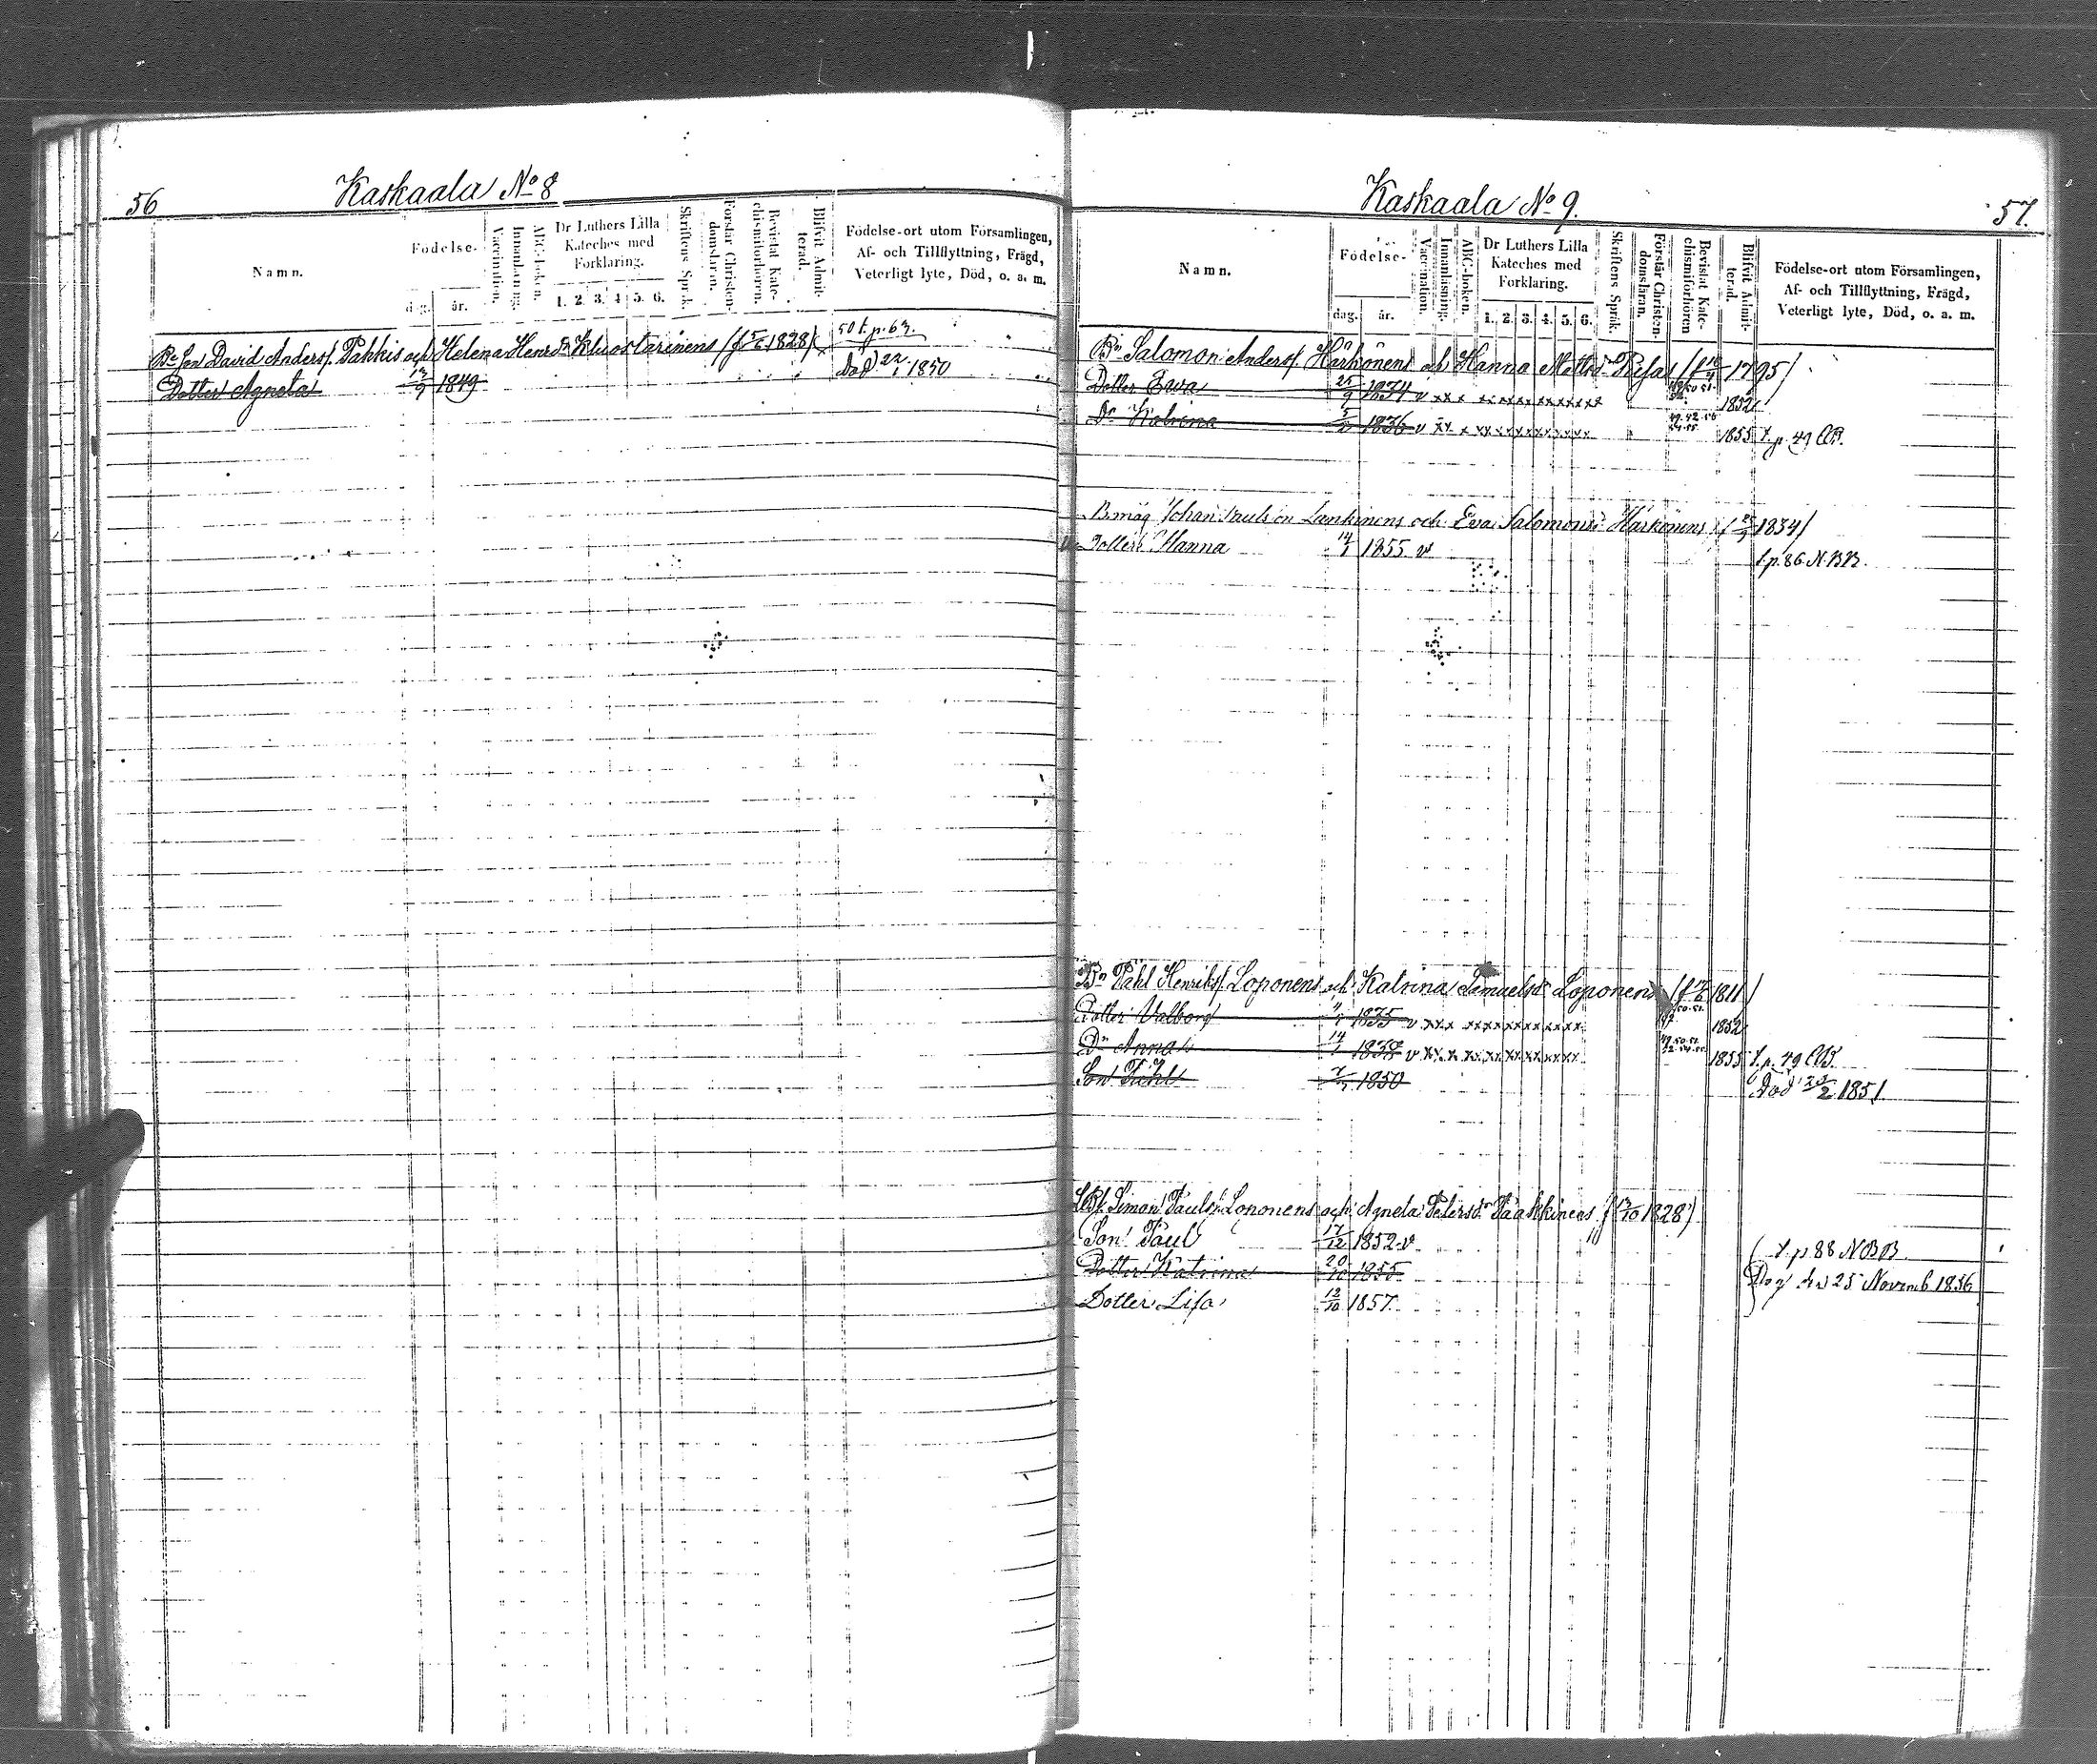 56
Kaskaala No 8
Namn.
Födelse-
dag.
år.
Vaccination.
Innanläsning.
ABC-boken.
Dr Luthers Lilla
Kateches med
Förklaring.
1. 2. 3. 4. 5. 6.
Skriftens Språk.
Förstår Christen-
domsläran.
Bevistat Kate-
chismiförhören.
Blifvit Admit-
terad.
Födelse-ort utom Församlingen,
Af- och Tillflyttning, Frägd,
Veterligt lyte, Död, o. a. m.
Bo Son David Anderss. Pahkis och Helena Henrsdr (f 1828)
50 t. p. 63.
Dotter Agneta 1849 Död 1850
Kaskaala No 9.
57.
Namn.
Födelse-
dag.
år.
Vaccination.
Innanläsning.
ABC-boken.
Dr Luthers Lilla
Kateches med
Förklaring.
1. 2. 3. 4. 5. 6.
Skriftens Språk.
Förstår Christen-
domsläran.
Bevistat Kate-
chismiförhören
Blifvit Admit-
terad.
Födelse-ort utom Församlingen,
Af- och Tillflyttning, Frägd,
Veterligt lyte, Död, o. a. m.
Bn Salomon Anderss. Härkönens och Hanna 1795)
Dotter Ewa 25/9 1834 v xxx 1852
Dr Katrina 1836 v xx x 1855 t. p. 49
Bmåg Johan Paulson Lankinens och Eva Salomonsdr Härkönens 1834)
Dotter Hanna 14/1 1855 v
t. p. 86 N.BB.
Bn Påhl Henrikss. Loponens och Katrina Samuelsdr Loponens 1811)
Dotter Valborg 1835 v xxx 1852
Dr Anna 14/1 v xx x 1855 t. p. 49
Son Påhl 1850 Död 1851
Simon Paulss. Loponens och Agneta Petersdr Pääkkinens 1828)
Son Paul 17/12 1852 v t. p. 88 NBB
Dotter Katrina 20/10 1855 Dog den 25 Novemb 1856
Dotter Lisa 12/10 1857